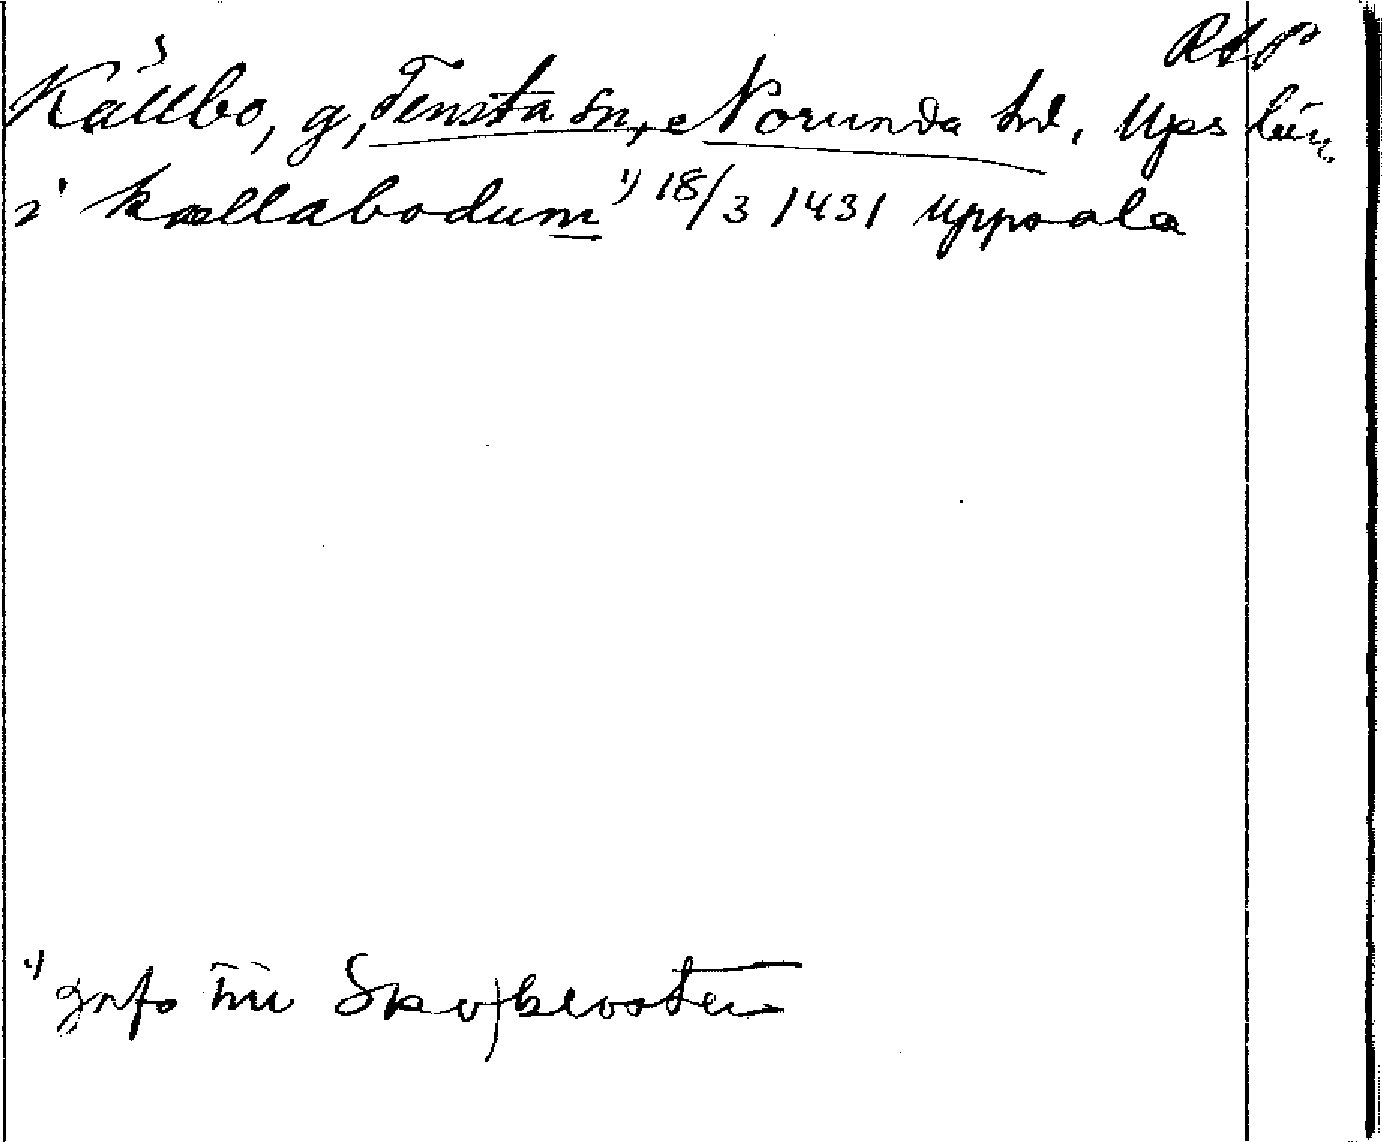 RAP
Källbo, g, Tensta sn, Norunda hd. Upps län
i kællabodum ¹⁾ 18/3 1431 Uppsala
¹⁾ till Skokloster